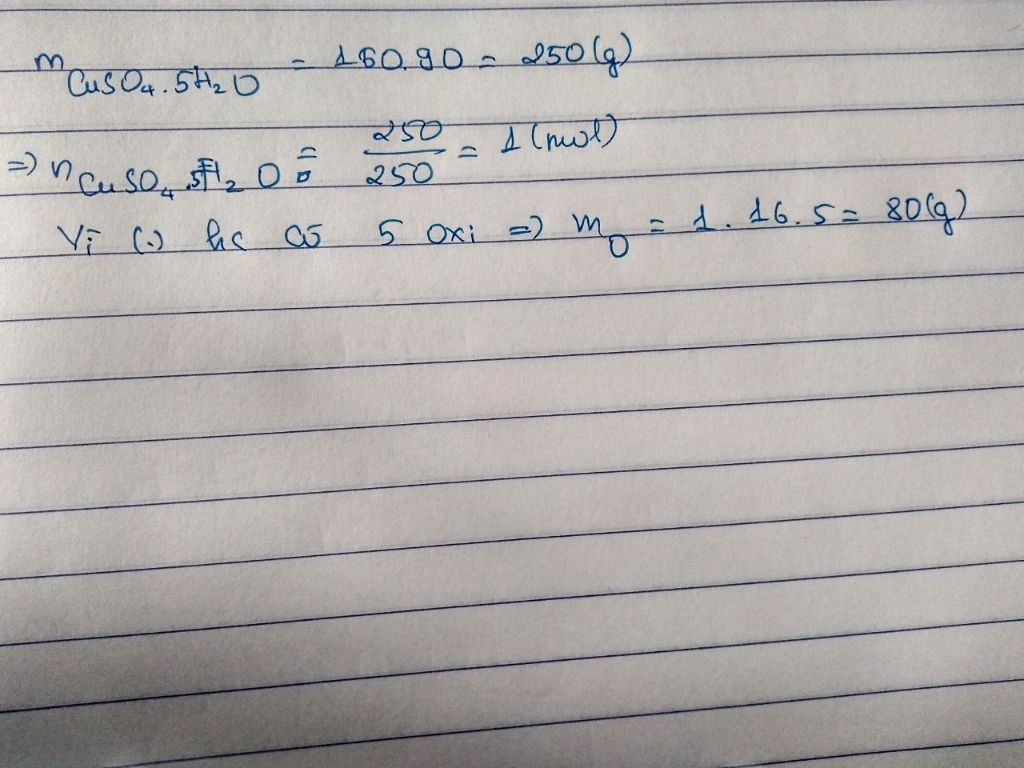 m CuSO₄.5H₂O = 160.90 = 250(g)
=> n CuSO₄.5H₂O = 250/250 = 1 (mol)
Vì (.) hc có 5 oxi => m O = 1.16.5 = 80(g)